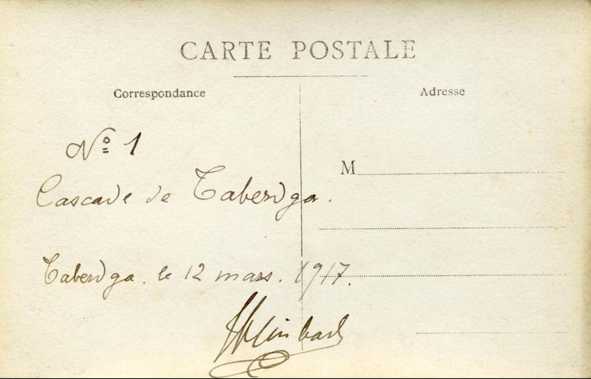 CARTE POSTALE
Correspondance
Adresse
Nº 1
M
Cascade de Taberdga.
Taberdga. le 12 mars. 1917.